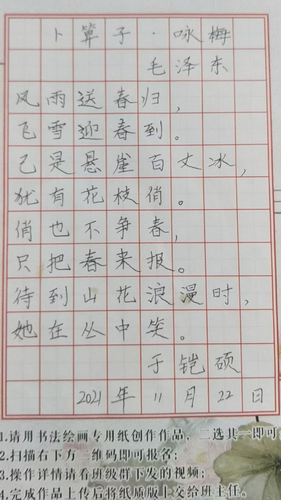 卜算子·咏梅
毛泽东
风雨送春归,
飞雪迎春到。
己是悬崖百丈冰,
犹有花枝俏。
俏也不争春,
只把春来报。
待到山花浪漫时,
她在丛中笑。
于铠硕
2021年11月22日
1.请用书法绘画专用纸创作作品,二选其一即可
2.扫描右下方二维码即可报名;
3.操作详情请看班级群下发的视频;
4.完成作品上传后将纸质版上交给班主任。